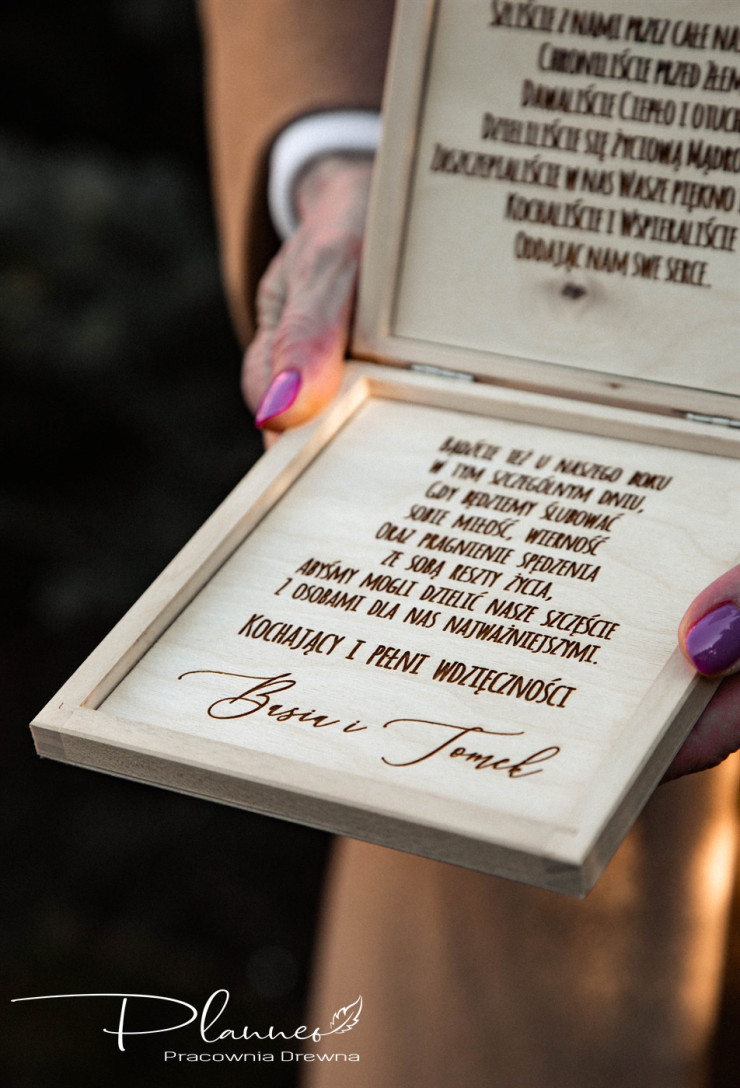 Szliście z nami przez całe
Chroniliście przed
Dawaliście Ciepło i
Dzieliliście się Życiową
Zaszczepialiście w nas Wasze piękno
Kochaliście i Wspieraliście
Oddając nam swe serce.
Bądźcie też u naszego boku
w tym szczególnym dniu,
gdy będziemy ślubować
sobie miłość, wierność
oraz pragnienie spędzenia
ze sobą reszty życia,
abyśmy mogli dzielić nasze szczęście
z osobami dla nas najważniejszymi.
Kochający i pełni wdzięczności
Basia i Tomek
Planneo
Pracownia Drewna